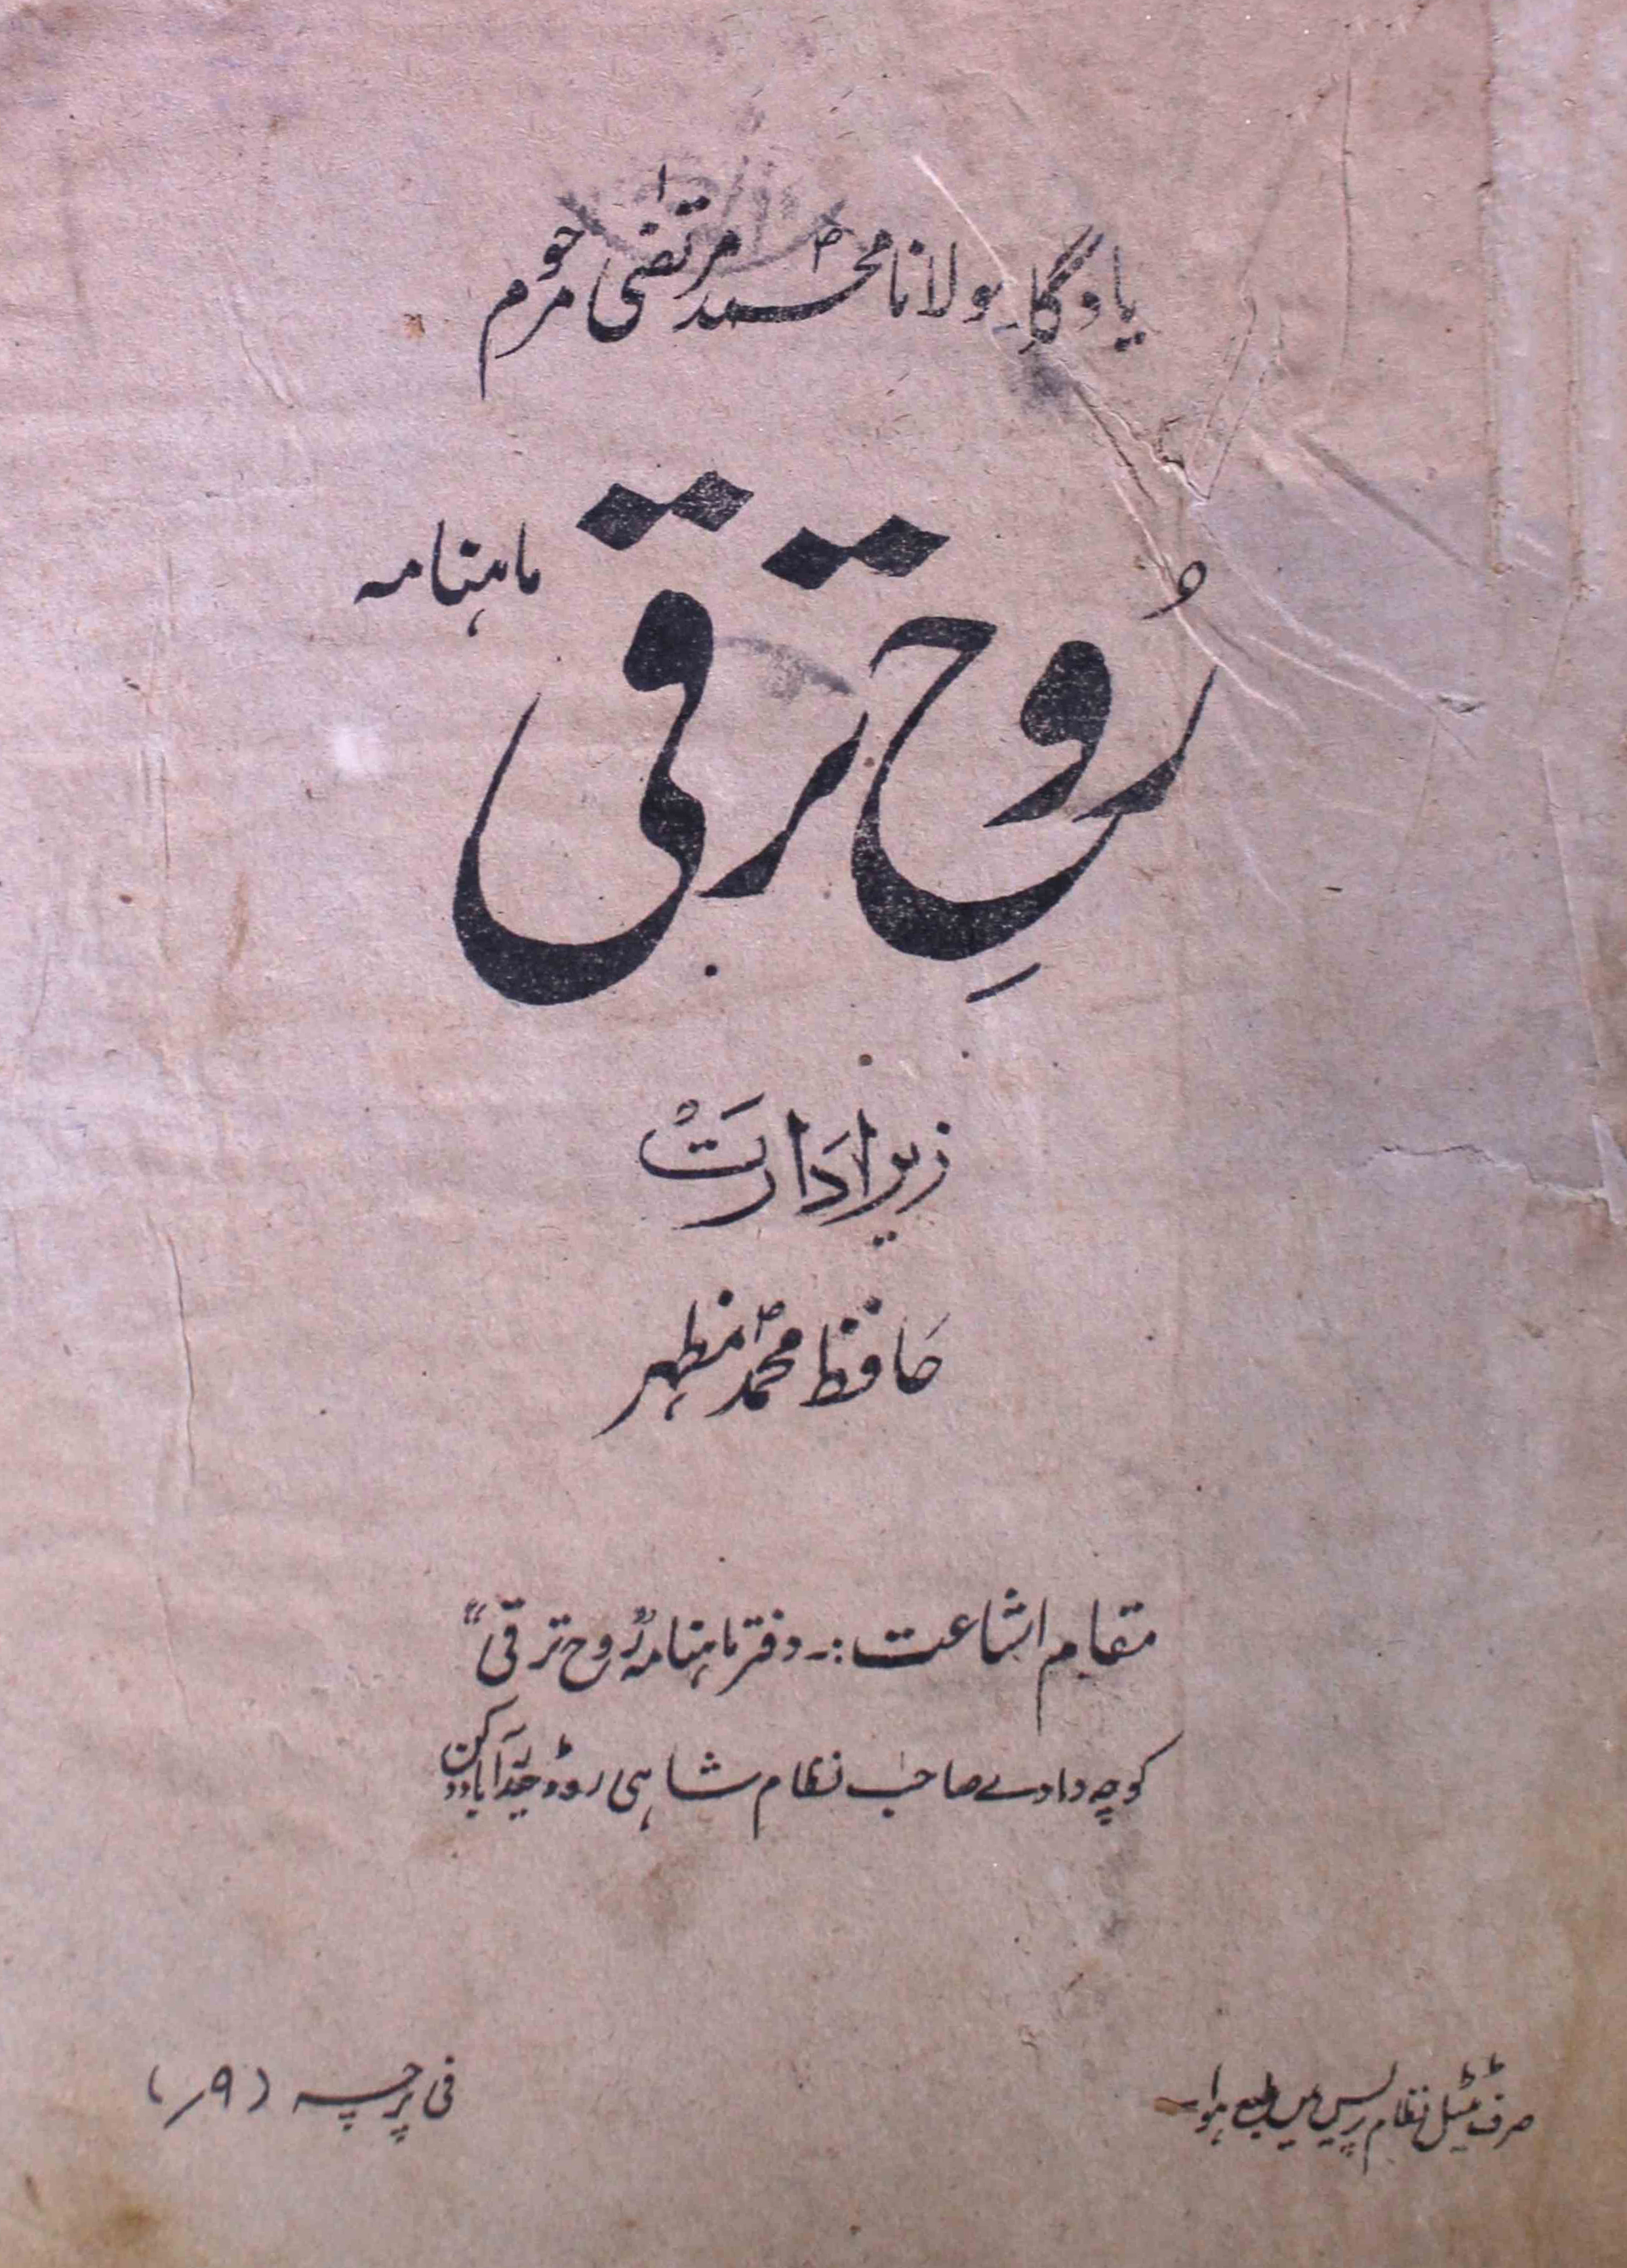 یادگارِ مولانا محمد مرتضیٰ مرحوم
ماہنامہ
رُوحِ ترقی
زیر ادارت
حافظ محمد مظہر
مقام اشاعت :۔ دفتر ماہنامہ "رُوح ترقی"
کوچہ دادے صاحب نظام شاہی روڈ حیدرآباد دکن
صرف ٹیٹل نظام پریس میں طبع ہوا۔
فی پرچہ (۹؍)